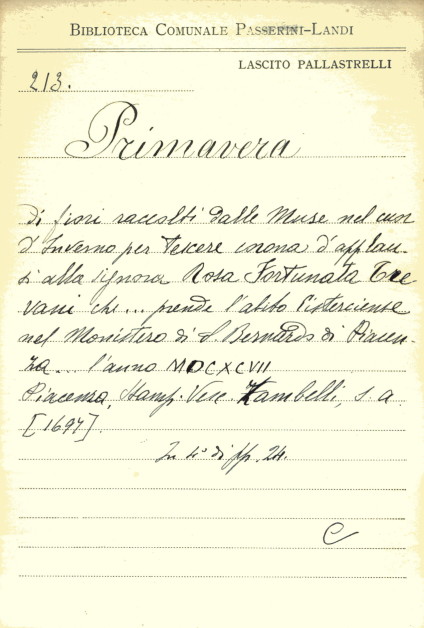 BIBLIOTECA COMUNALE PASSERINI-LANDI
LASCITO PALLASTRELLI
213.
Primavera
Di fiori raccolti dalle Muse nel cuor
d'Inverno per tescere corona d'applau-
si alla signora Rosa Fortunata Tre
vani che... prende l'abito Cisterciense
nel Monistero di S. Bernardo di Piacen-
za... l'anno MDCXCVII
Piacenza, Stamp. Vesc. Zambelli, s. a.
[1697].
In 4° di pp. 24.
C